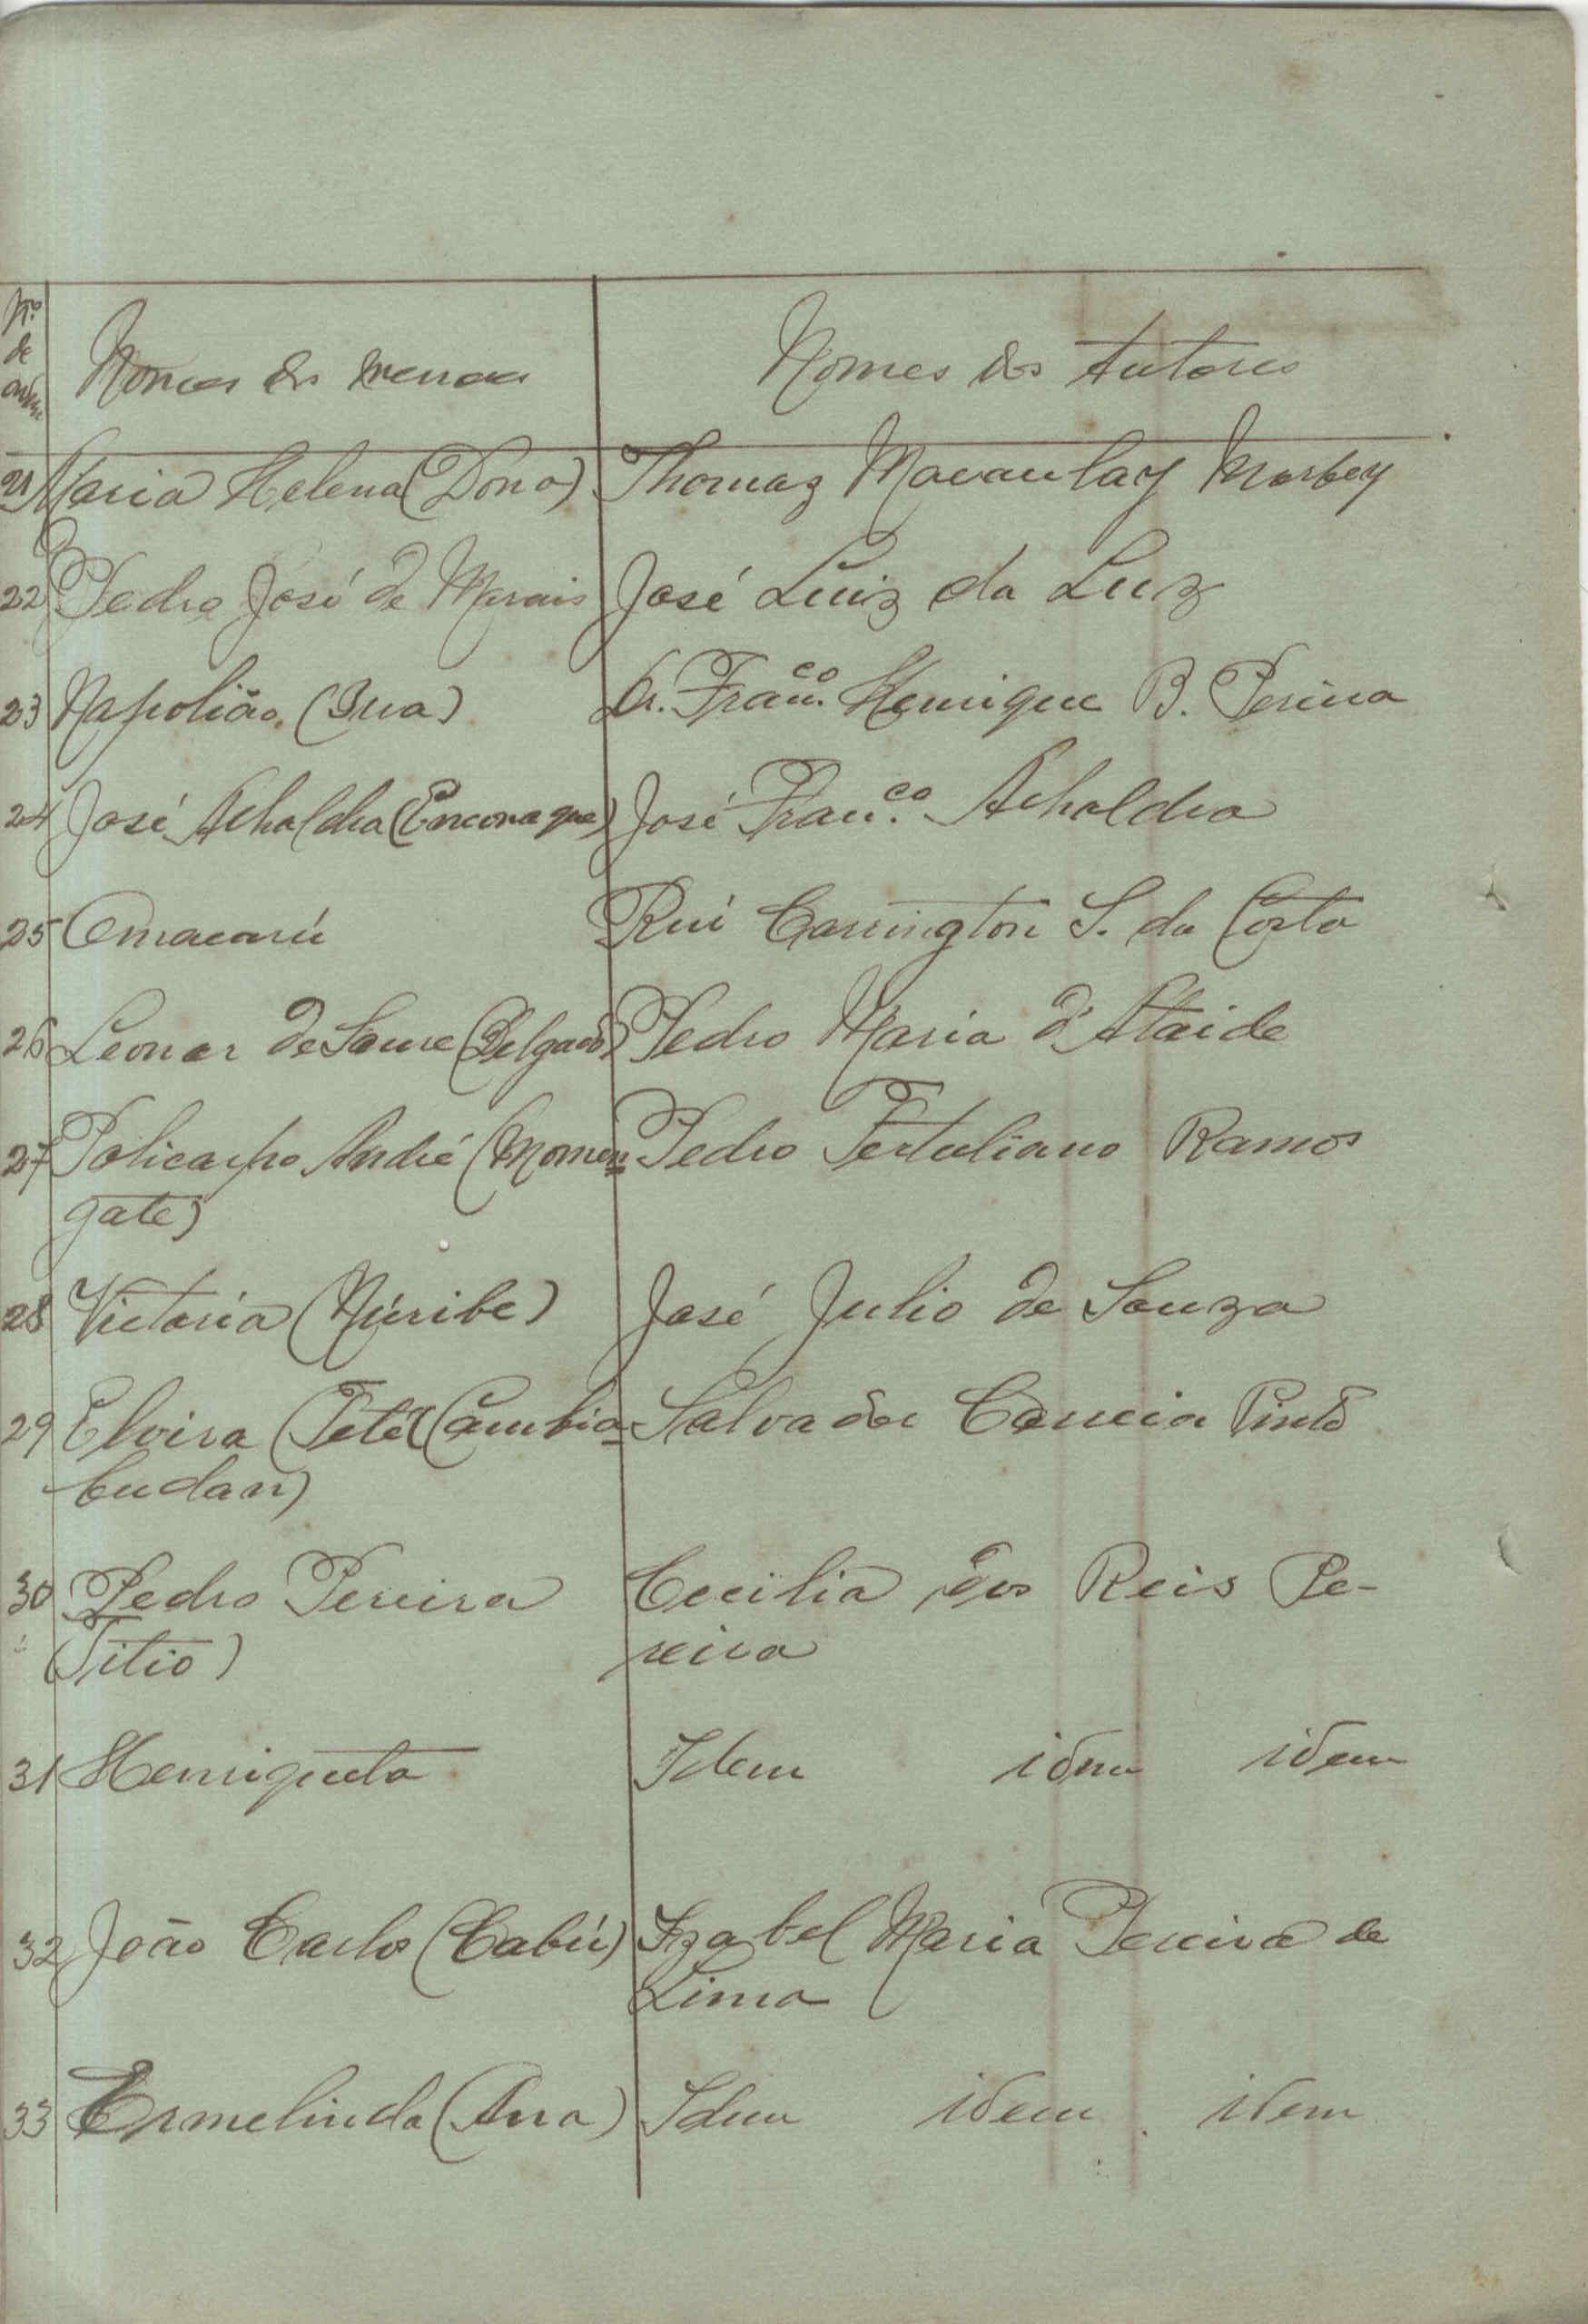 Nº de ordem Nomes dos menores Nomes dos tutores
21 Maria Helena (Dona) Thomaz Macaulay Morbey
22 Pedro José de Morais José Luiz da Luz
23 Napolião (Bua) Dr. Franco. Henrique B. Pereira
24 José Achaldra José Franco. Achaldra
25 Omacarú Rui Carrington S. da Costa
26 Leonor de Soure (Delgado) Pedro Maria d'Ataide
27 Policarpo André (Momen- Pedro Tertuliano Ramos
gate)
28 Victoria (Núribe) José Julio de Souza
29 Elvira (Teté) (Cambia- Salvador Correia Pinto
cudan)
30 Pedro Pereira Cecilia dos Reis Pe-
(Titio) reira
31 Henriqueta Idem idem idem
32 João Carlos (Cabú) Izabel Maria Pereira de
Lima
33 Ermelinda (Ana) Idem idem idem